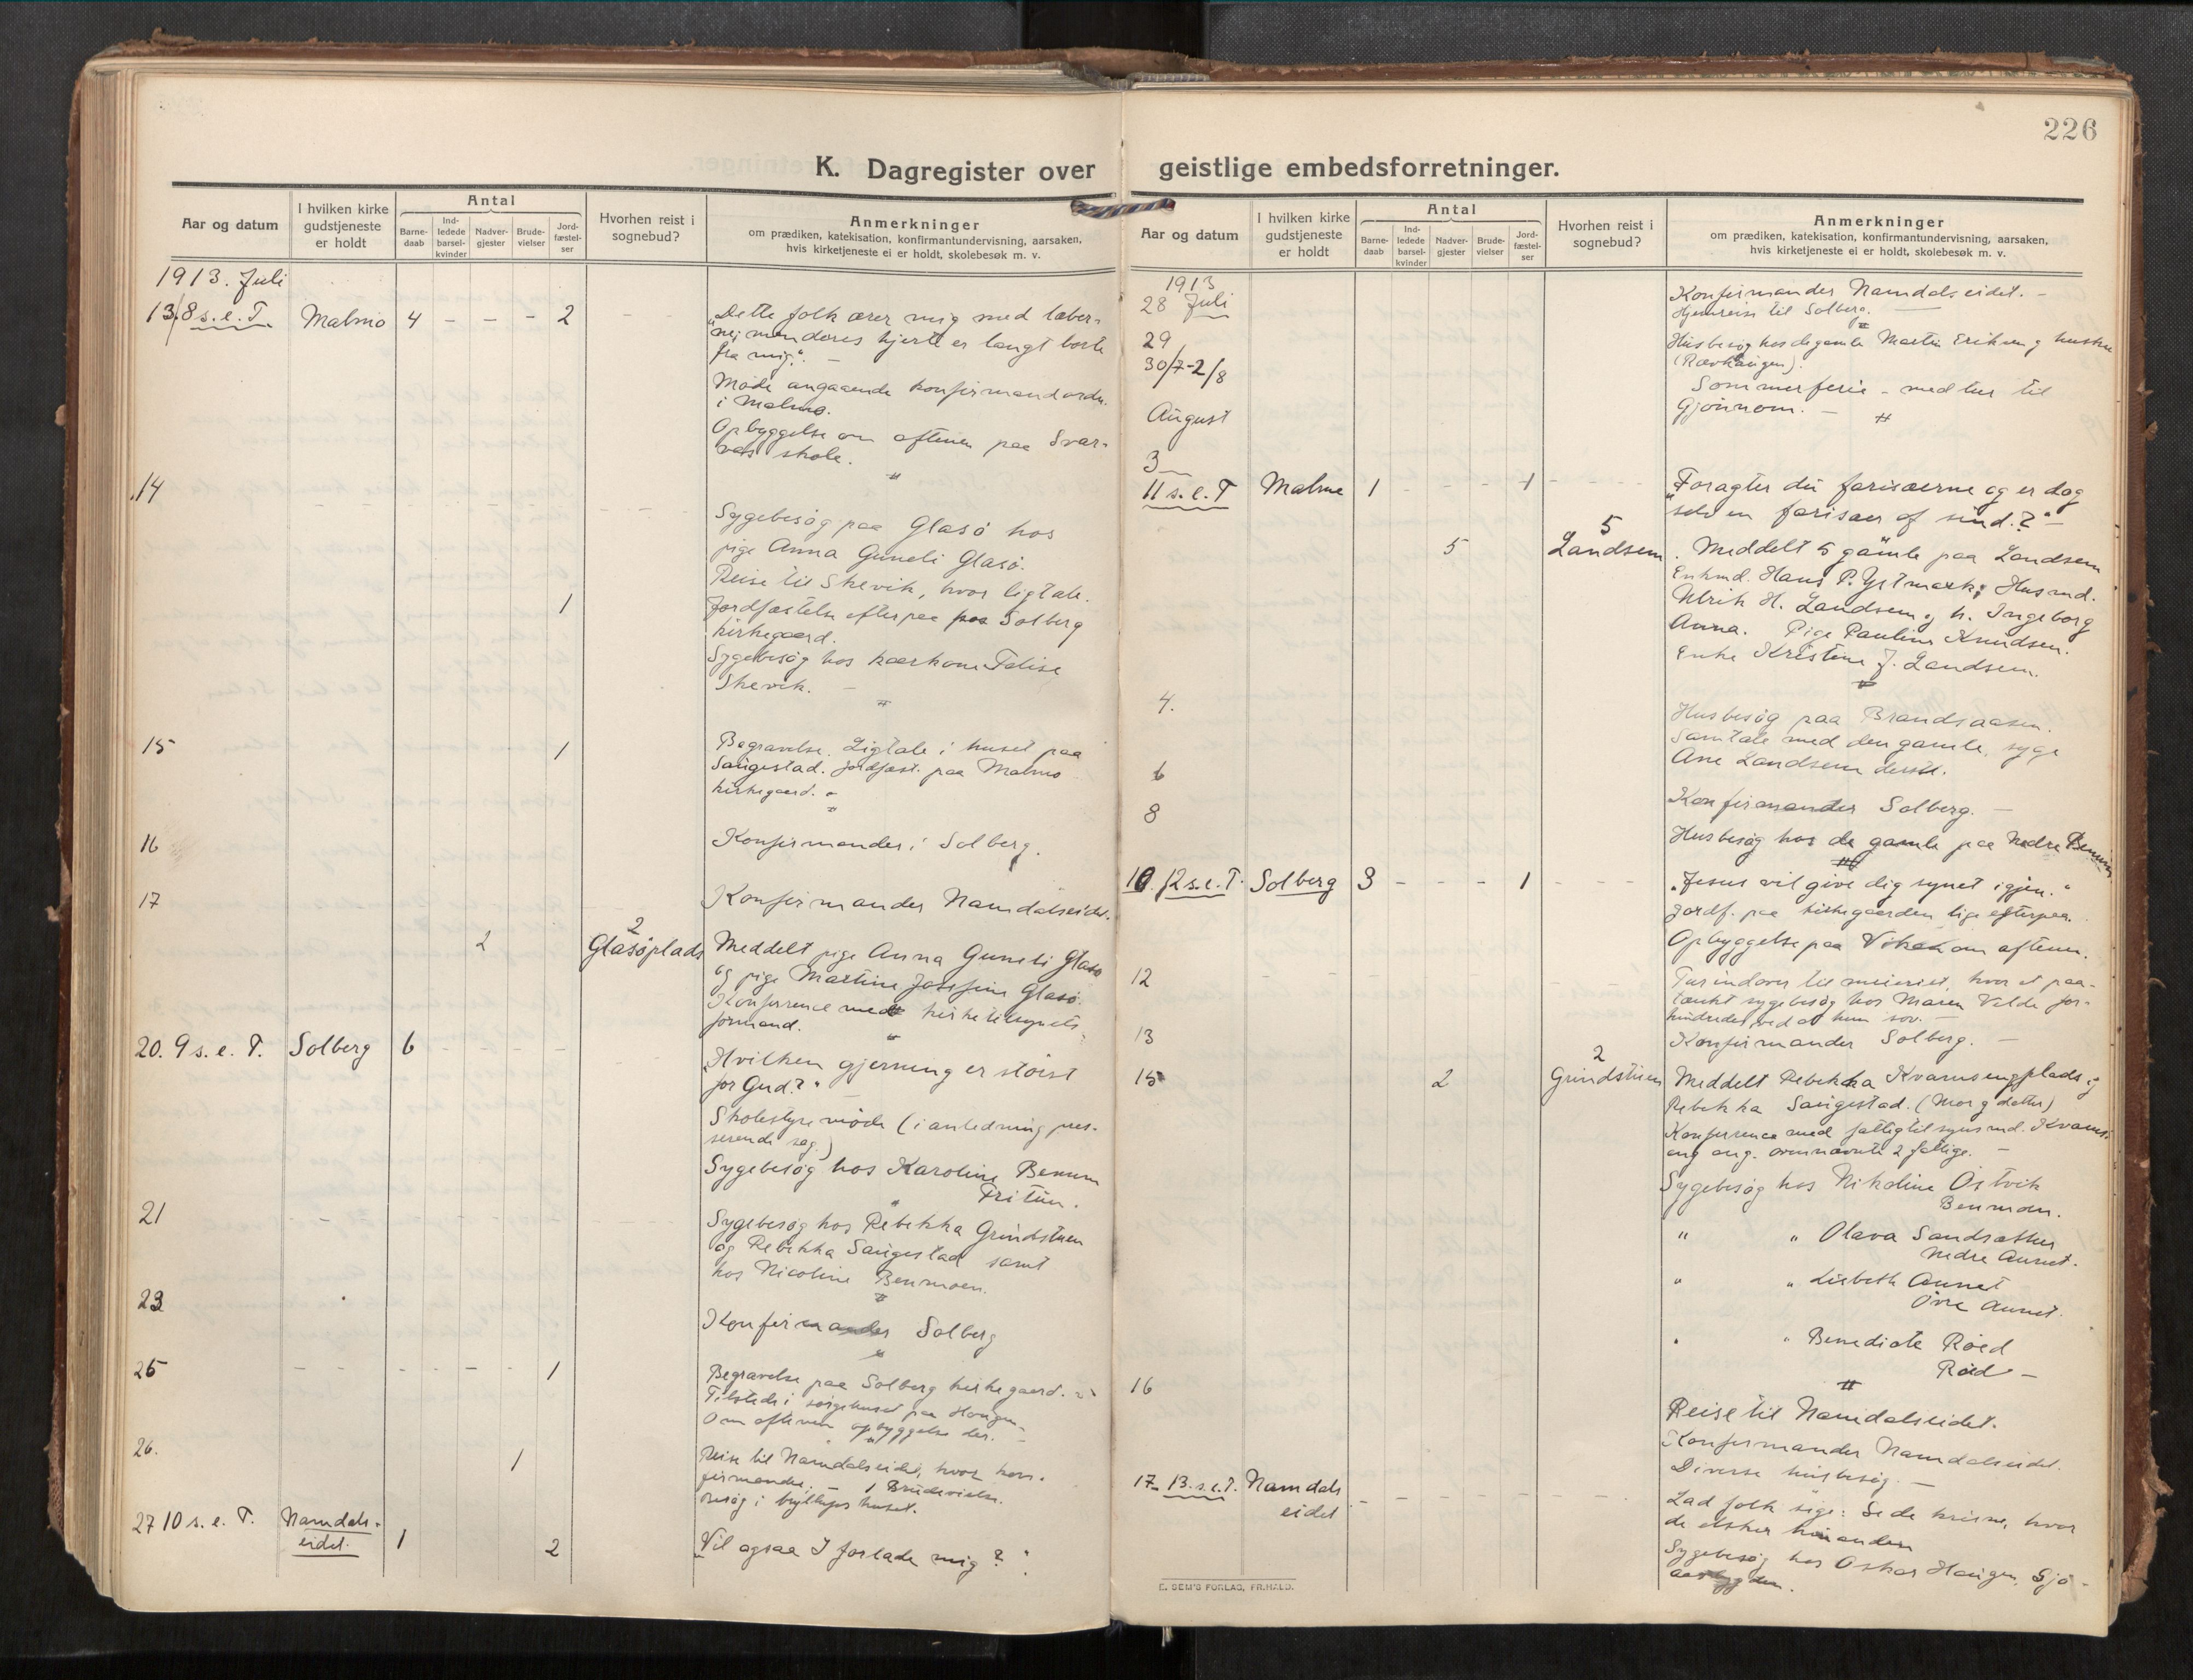 226
K. Dagregister over geistlige embedsforretninger.
Aar og datum
I hvilken kirke gudstjeneste er holdt
Antal
Barne-daab
Ind-ledede barsel-kvinder
Nadver-gjester
Brude-vielser
Jord-fæstel-ser
Hvorhen reist i sognebud?
Anmerkninger
om prædiken, katekisation, konfirmantundervisning, aarsaken,
hvis kirketjeneste ei er holdt, skolebesøk m. v.
1913. Juli
13/8 s. e. T. Malmo 4 - - - 2 - - "Dette folk ærer mig med læber-
ne; men deres hjerte er langt borte
fra mig." -
Møde angaaende konfirmandordn.
i Malmo.
Opbyggelse om aftenen paa Svar-
vas skole.
14
Sygebesøg paa Glasø hos
pige Anna Guneli Glasø.
Reise til Skevik, hvor ligtale.
1 Jordfæstelse efterpaa paa Solberg
kirkegaard.
Sygebesøg hos kaarkone Felise
Skevik. -
15 1 Begravelse. Ligtale i huset paa
Saugestad. Jordfæst. paa Malmo
kirkegaard. -
16 Konfirmander i Solberg.
17 Konfirmander Namdalseidet.
2
2 Glasøplads Meddelt pige Anna Guneli Glasø
og pige Martine Josefine Glasø.
Konference med kirketilsynets
formand.
20. 9 s. e. T. Solberg 6 - - - - "Hvilken gjerning er størst
for Gud?" -
Skolestyremøde (i anledning pres-
serende sag.)
Sygebesøg hos Karoline Benum
Fritun.
21 Sygebesøg hos Rebekka Grindstuen
og Rebekka Saugestad samt
hos Nicoline Benmoen.
23 Konfirmander Solberg
25 - - - - - - 1 Begravelse paa Solberg kirkegaard.
Tilstede i sørgehuset paa Haugen.
Om aftenen opbyggelse der. -
26. 1 Reise til Namdalseidet, hvor kon-
firmander; - 1 Brudevielse.
Besøg i bryllupshuset.
27 10 s. e. T. Namdals-
eidet. 1 2 "Vil ogsaa I forlade mig?"
Aar og datum
I hvilken kirke gudstjeneste er holdt
Antal
Barne-daab
Ind-ledede barsel-kvinder
Nadver-gjester
Brude-vielser
Jord-fæstel-ser
Hvorhen reist i sognebud?
Anmerkninger
om prædiken, katekisation, konfirmantundervisning, aarsaken,
hvis kirketjeneste ei er holdt, skolebesøk m. v.
1913
28 Juli Konfirmander Namdalseidet. -
Hjemreise til Solberg.
29 Husbesøg hos de gamle Martin Eriksen og hustru
(Rævhaugen).
30/7-2/8 Sommerferie - med tur til
Gjønnom. -
August
3
11 s. e. T Malmo 1 - - - 1 - - - "Foragter du farisæerne og er dog
selv en farisæer af sind?" -
5
5 Landsem. Meddelt 5 gamle paa Landsem
Enkmd. Hans P. Ystmark; Husmd.
Ulrik H. Landsem og h. Ingeborg
Anna. Pige Pauline Knudsen.
Enke Kristine J. Landsem.
4. Husbesøg paa Brandsaasen.
Samtale med den gamle, syge
Ane Landsem dersst.
6 Konfirmander Solberg. -
8 Husbesøg hos de gamle paa Nedre Benum
10. 12 s. e. T. Solberg 3 - - - 1 - - - "Jesus vil give dig synet igjen."
Jordf. paa kirkegaarden lige efterpaa.
Opbyggelse paa om aftenen.
12 Tur indover til meieriet, hvor et paa-
tænkt sygebesøg hos Maren Velde for-
hindredes ved at hun sov. -
13 Konfirmander Solberg. -
2
15 2 Grindstuen Meddelt Rebekka Kvamsengplads og
Rebekka Saugestad. (Mor og datter)
Konference med fattigtilsynsmd. Kvams-
eng ang. ovennævnte 2 fattige. -
Sygebesøg hos Nikoline Østvik
Benmoen.
" " Olava Sandsæther
nedre Aunet.
" " Lisbeth Aunet
Øvre Aunet.
" " Benedicte Røed
Røed -
16 Reise til Namdalseidet.
Konfirmander Namdalseidet.
Diverse husbesøg. -
17. 13. s. e. T. Namdals
eidet - - - - - - - - Lad folk sige: Se de kristne, hvor
de elsker hinanden
Sygebesøg hos Oskar Haugen, Sjø-
aasbygden.
E. SEM'S FORLAG, FR.HALD.